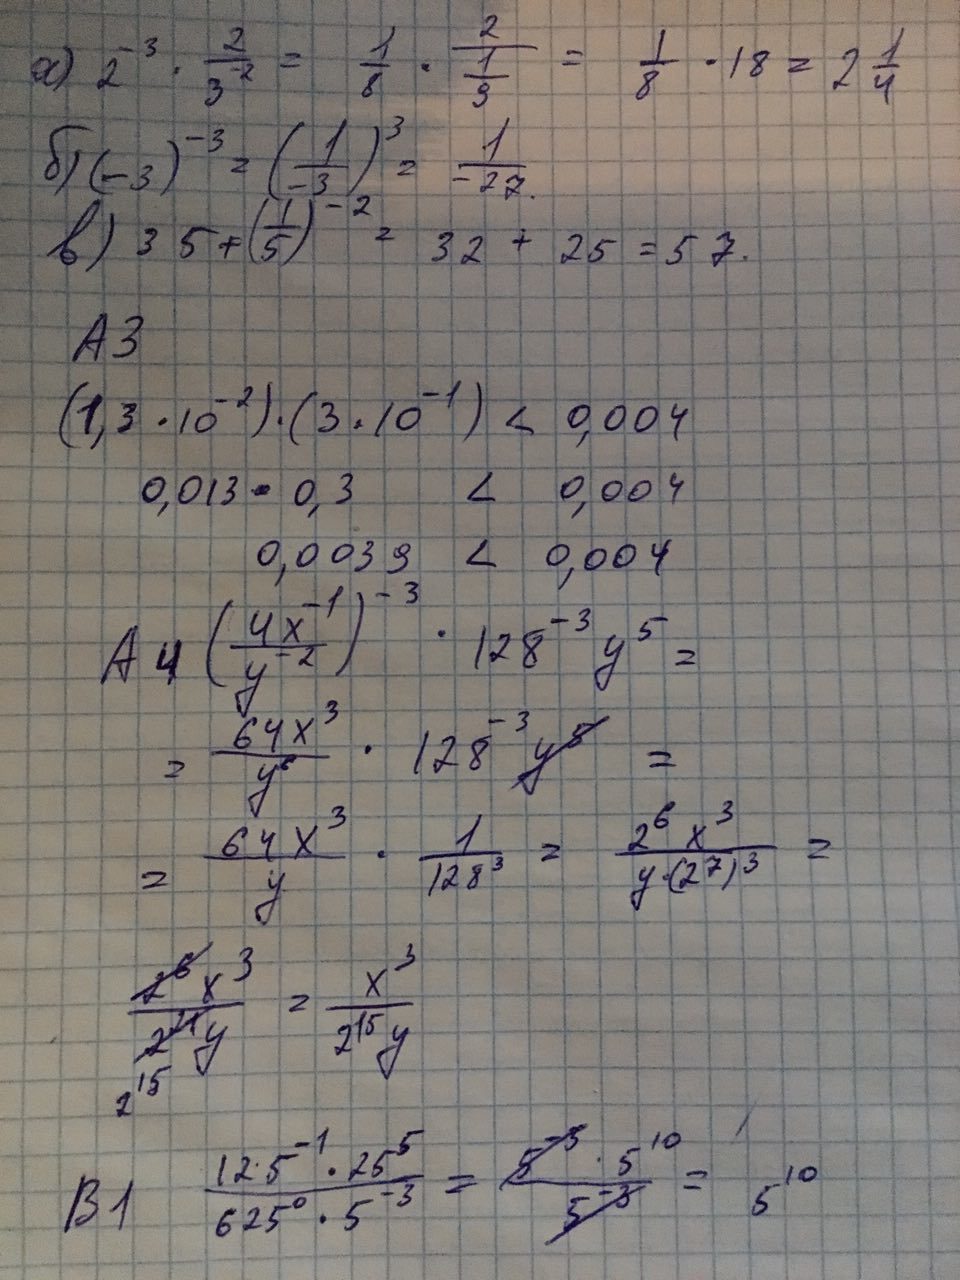 а) 2⁻³ · 2/3⁻² = 1/8 · 2/(1/9) = 1/8 · 18 = 2 1/4
б) (-3)⁻³ = (1/-3)³ = 1/-27.
в) 35 + (1/5)⁻² = 32 + 25 = 57.
А3
(1,3 · 10⁻²) · (3 · 10⁻¹) < 0,004
0,013 · 0,3 < 0,004
0,0039 < 0,004
А4 (4x⁻¹/y⁻²)⁻³ · 128⁻³ y⁵ =
= 64x³/y⁶ · 128⁻³ y⁵ =
= 64x³/y · 1/128³ = 2⁶x³/y·(2⁷)³ =
2⁶x³/2²¹y = x³/2¹⁵y
2¹⁵
В1 12·5⁻¹ · 25⁵/625⁰ · 5⁻³ = 5⁻³ · 5¹⁰/5⁻³ = 5¹⁰